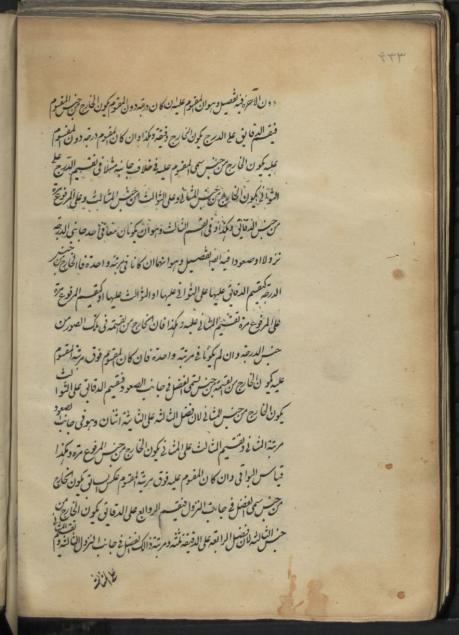 ٤٣٣
دون الآخر وفيه تفصيل وهو ان المقسوم عليه ان كان درجة دون المقسوم يكون الخارج من جنس المقسوم
فيقسم الدقايق على الدرج يكون الخارج دقيقة وهكذا وان كان المقسوم درجة دون المقسوم
عليه يكون الخارج من جنس سمي المقسوم عليه في خلاف جانبه مثلا في تقسيم الدرج على
الثواني يكون الخارج من جنس المثاني وعلى الثوالث من جنس المثالث وعلى المرفوع مرة
من جنس الدقايق وهكذا وفي القسم الثالث وهو ان يكونان معا في احد جانبي الدرجة
نزولا او صعودا فيه ايضا تفصيل وهو انهما ان كانا في مرتبة واحدة فالخارج من جنس
الدرجة كتقسيم الدقايق عليها على الثواني عليها او الثوالث عليها او كتقسيم المرفوع مرة
على المرفوع مرة تقسيم الثاني عليه وهكذا فان الخارج من القسمة في تلك الصور من
جنس الدرجة وان لم يكونا في مرتبة واحدة فان كان المقسوم فوق مرتبة المقسوم
عليه يكون الخارج من القسمة من جنس سمي الفضل في جانب الصعود فتقسيم الدقايق على الثوالث
يكون الخارج من جنس المثاني لان فضل الثالثة على الثانية اثنان وهو في جانب الصعود
مرتبة المثاني وتقسيم الثالث على المثاني يكون الخارج من جنس المرفوع مرة وهكذا
قياس البواقي وان كان المقسوم عليه فوق مرتبة المقسوم بعكس السابق يكون الخارج
من جنس سمي الفضل في جانب النزول فتقسيم الروابع على الدقايق يكون الخارج من
جنس الثالثة لان فضل الرابعة على الدقيقة ثلثة ومرتبة ذلك الفضل في جانب النزول الثالثة وتقسيم